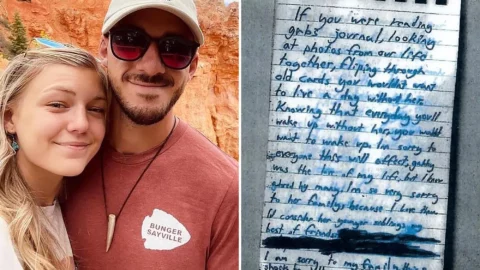 BUNGER
SAYVILLE
If you were reading
gabs journal, looking
at photos from our life
together, fliping through
old cards you wouldnt want
to live a day without her.
Knowing that everyday you'll
wake up without her, you wouldnt
want to wake up. Im sorry to
everyone this will affect, gabby
was the love of my life, but I know
adored by many. Im so very sorry
to her family because I love them
I'd consider her younger siblings my
best of friends
I am sorry to my family this